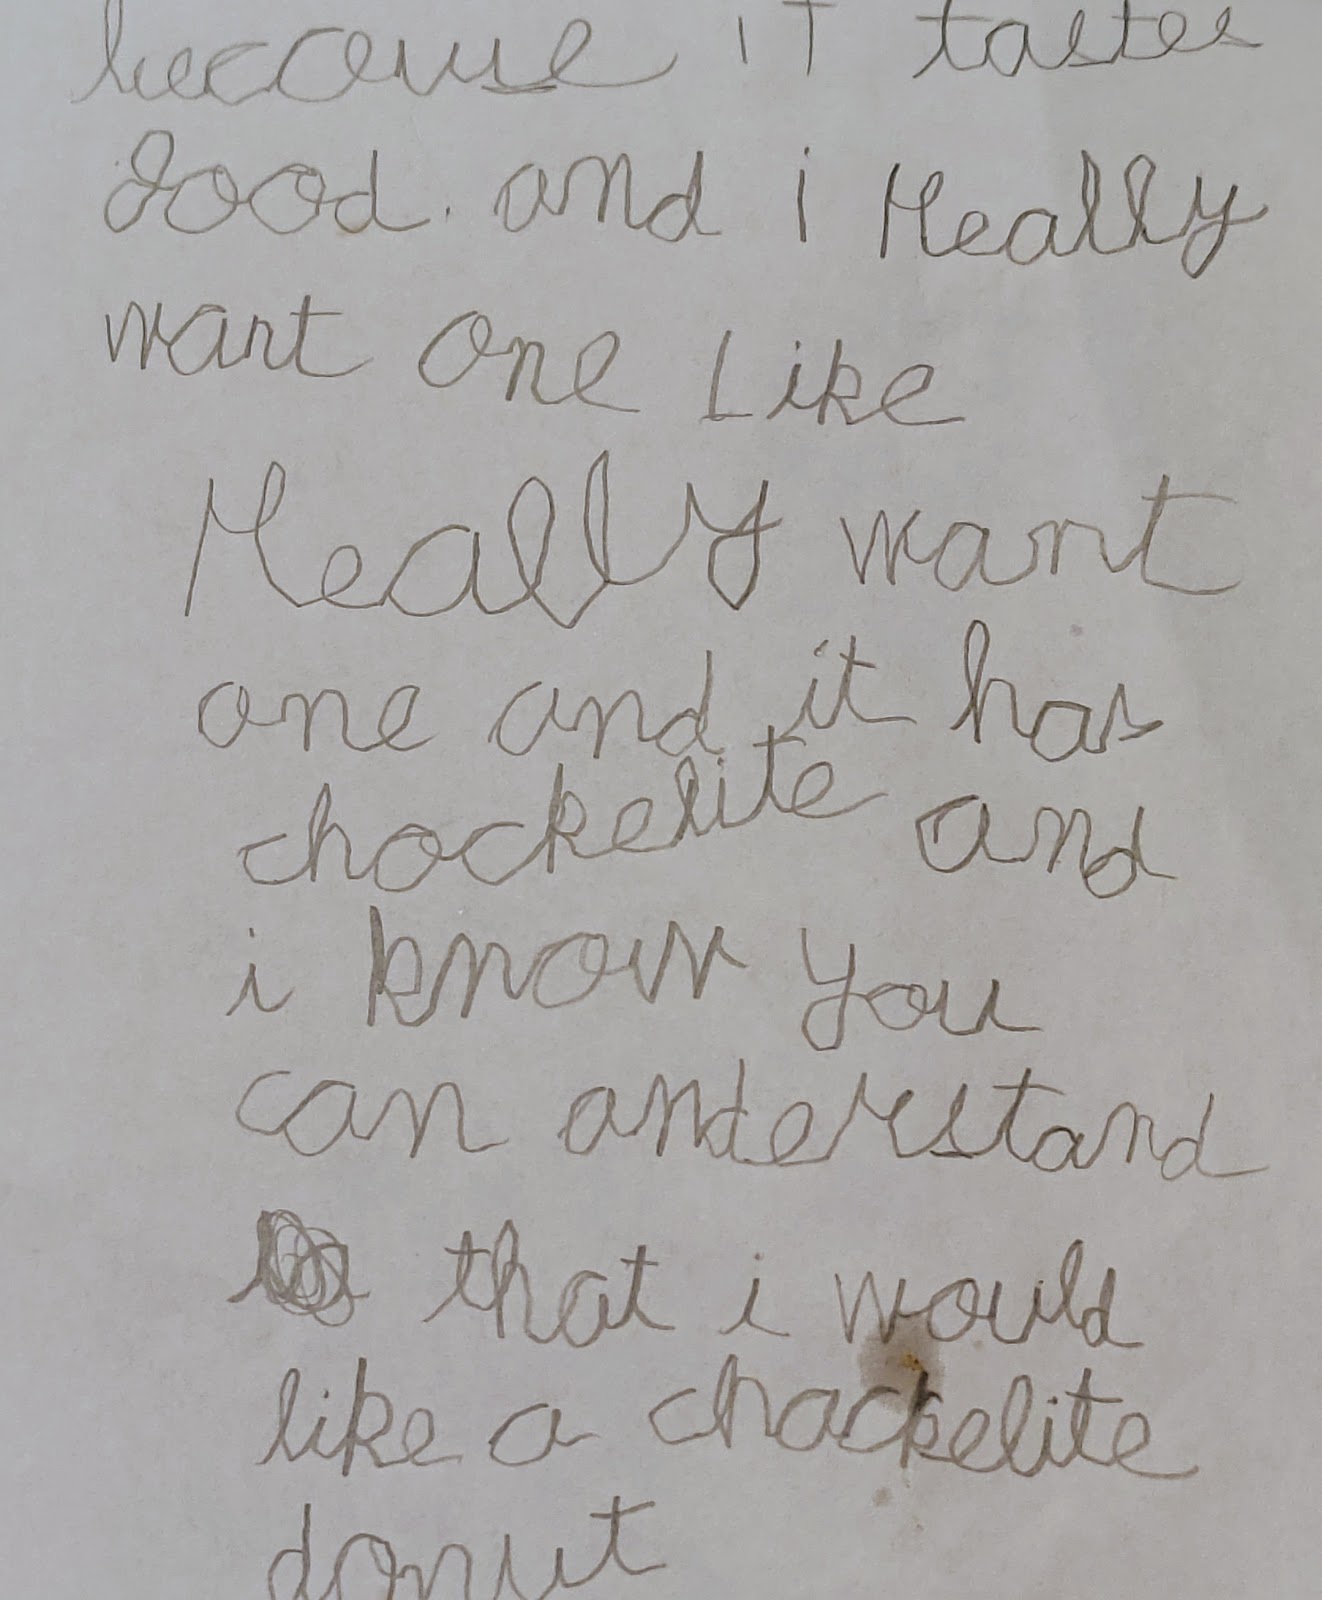 because iT tastes
good. and i Really
want one Like
Really want
one and it has
chockelite and
i know you
can anderstand
that i would
like a chackelite
donut